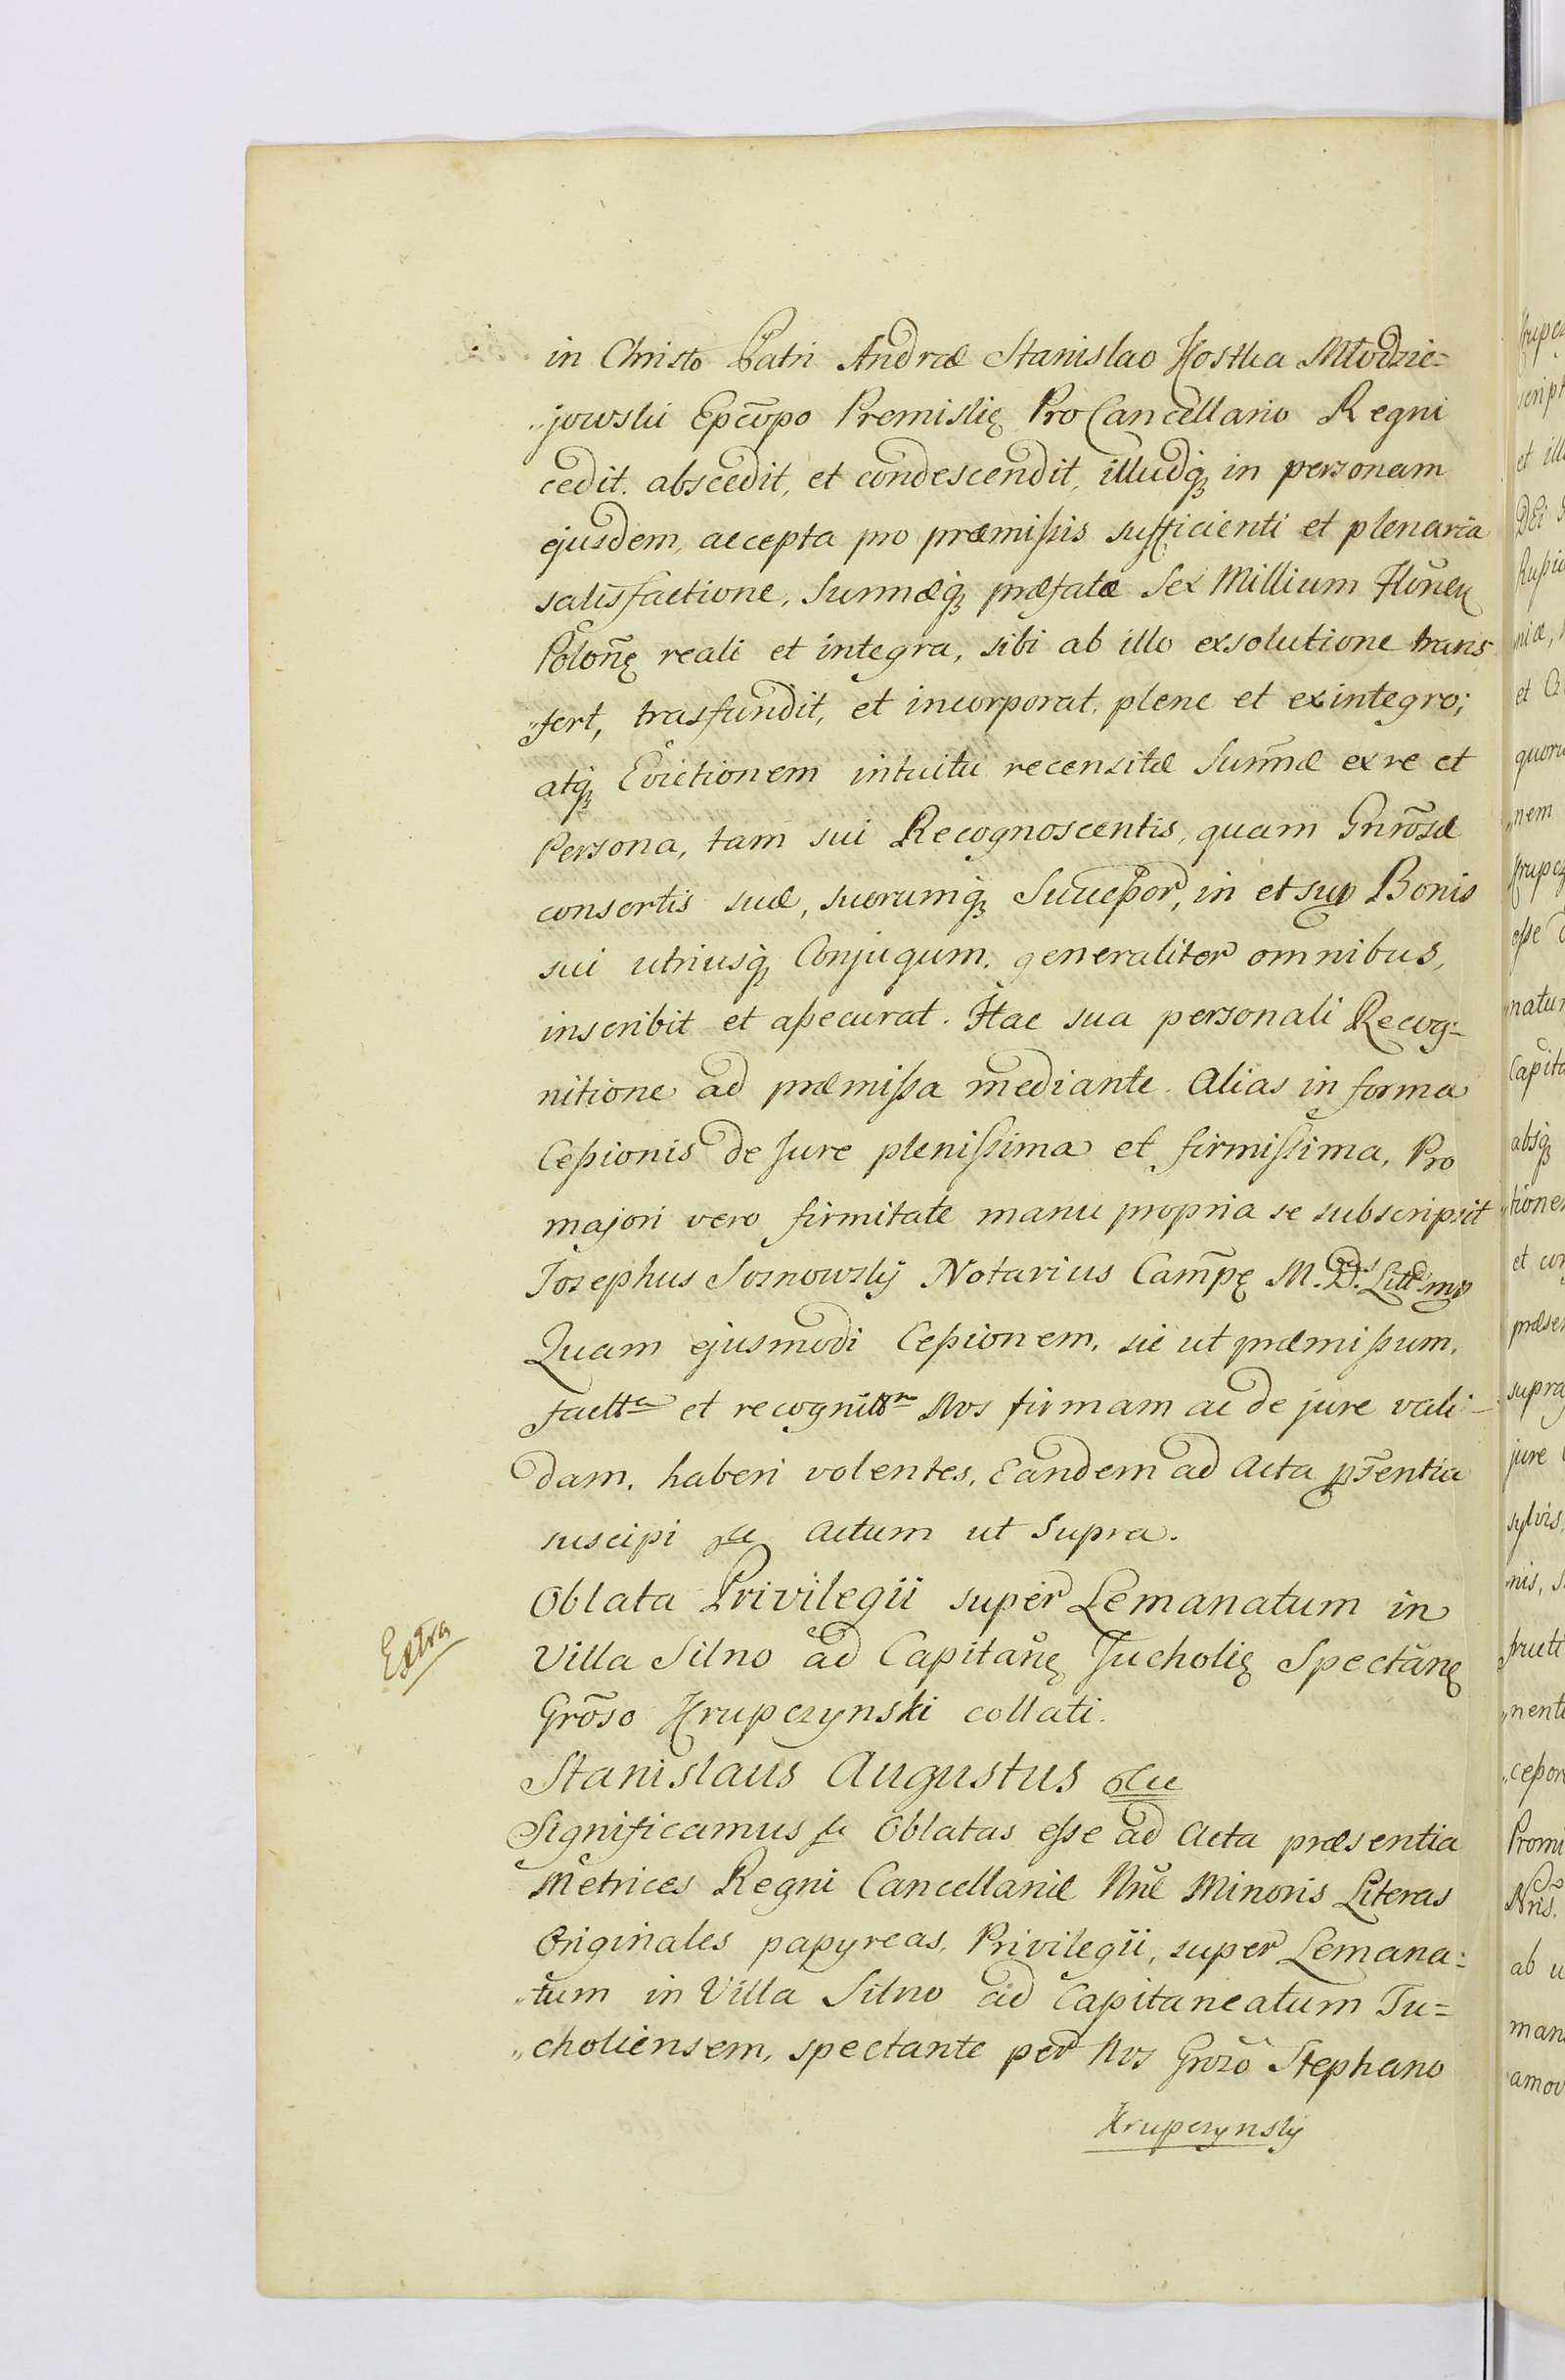 in Christo Patri Andræ Stanislao Kostka Młodzie=
„jowski Epc̃opo Premislię ProCancellario Regni
cedit. abscedit, et condescendit, illudq3 in personam
ejusdem, accepta pro præmissis sufficienti et plenaria
satisfactione, Sum̃æq3 præfatæ Sex Millium Floren
Polon̄ę reali et integra, sibi ab illo exsolutione trans
„fert, trasfundit, et incorporat. plene et exintegro;
atq3 Evictionem intuitu recensitæ Sum̃æ ex re et
Persona, tam sui Recognoscentis, quam Gnrõsæ
consortis suæ, suorumq3 Successor, in et sup Bonis
sui utriusq3 Conjugum. generaliter omnibus,
inscribit et assecurat. Hac sua personali Recog=
nitione ad præmissa mediante. Alias in forma
Cessionis de Jure plenissima et firmissima, Pro
majori vero firmitate manu propria se subscripsit
Josephus Sosnowskÿ Notarius Camp̃ę M. D. Litt. mp
Quam ejusmodi Cessionem, sic ut præmissum,
factta et recognitta Nos firmam ac de jure vali=
dam. haberi volentes. Eandem ad Acta pr̃sentia
suscipi &c Actum ut Supra.
Extra
Oblata Privilegii super Lemanatum in
Villa Silno ad Capitanę Tucholię Spectanę
Grõso Krupczynski collati.
Stanislaus Augustus &c
Significamus &c Oblatas esse ad Acta præsentia
Metrices Regni Cancellariæ Nr̃æ Minoris Literas
Originales papyreas, Privilegii, super Lemana=
„tum in Villa Silno ad Capitaneatum Tu=
„choliensem, spectante per Nos Grozõ Stephano
Krupczynskÿ